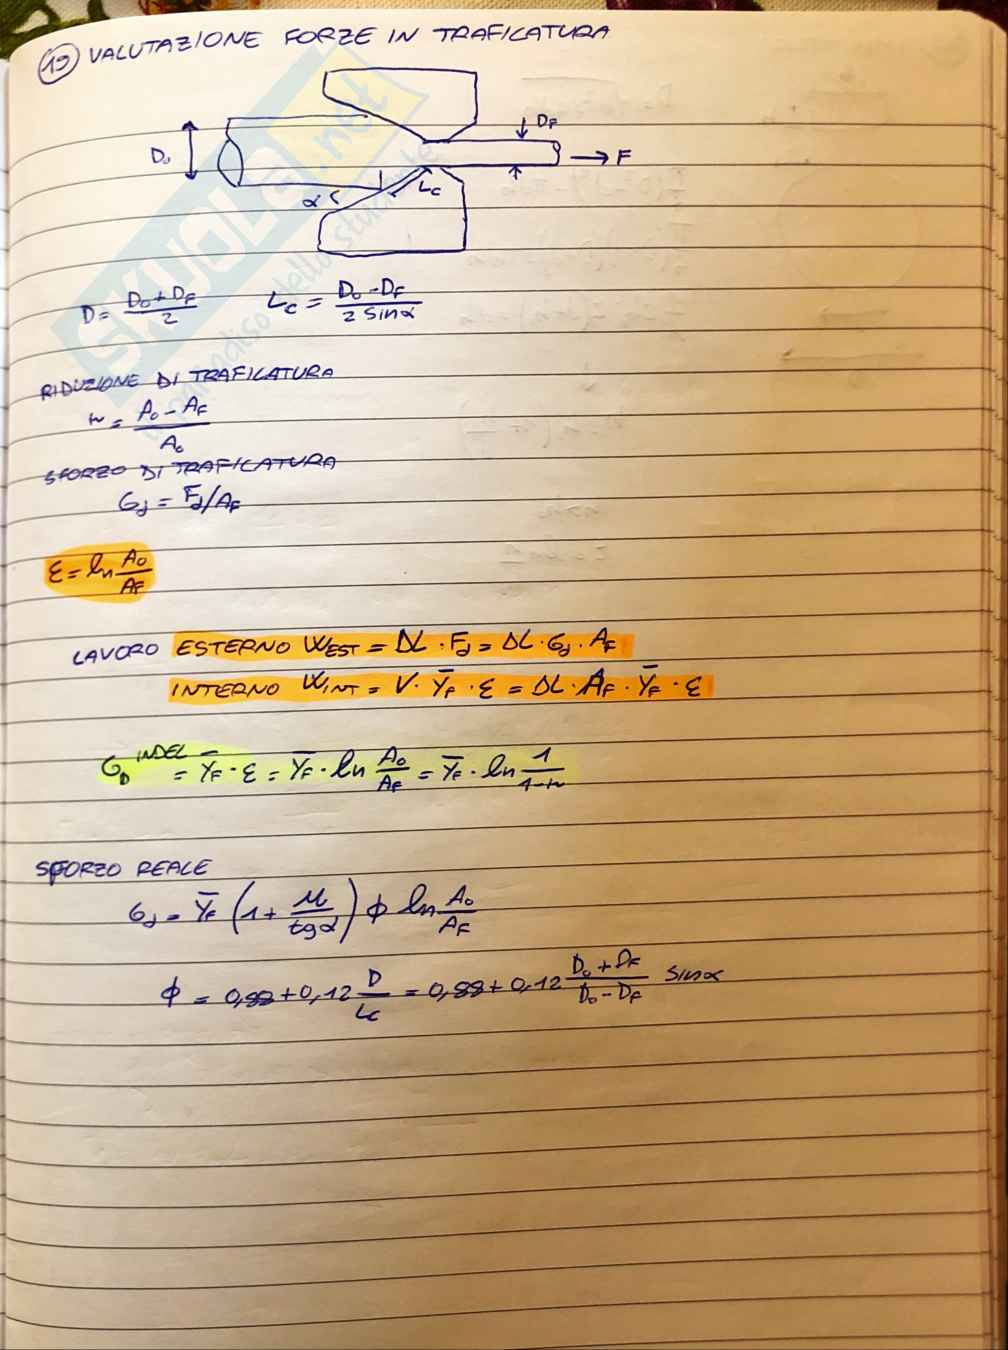 19 VALUTAZIONE FORZE IN TRAFICATURA
SKUOLA.net
il paradiso dello studente
D₀
D_F
→ F
α
L_C
D = (D₀ + D_F)/2    L_C = (D₀ - D_F)/(2 sinα)
RIDUZIONE DI TRAFICATURA
r = (A₀ - A_F)/A₀
SFORZO DI TRAFICATURA
σ_d = F_d/A_F
ε = ln A₀/A_F
LAVORO ESTERNO W_EST = ΔL · F_d = ΔL · σ_d · A_F
INTERNO W_INT = V · Ȳ_F · ε = ΔL · A_F · Ȳ_F · ε
σ_D^INDEL = Ȳ_F · ε = Ȳ_F · ln A₀/A_F = Ȳ_F · ln 1/(1-r)
SFORZO REALE
σ_d = Ȳ_F (1 + μ/tgα) ϕ ln A₀/A_F
ϕ = 0,88 + 0,12 D/L_C = 0,88 + 0,12 (D₀ + D_F)/(D₀ - D_F) sinα